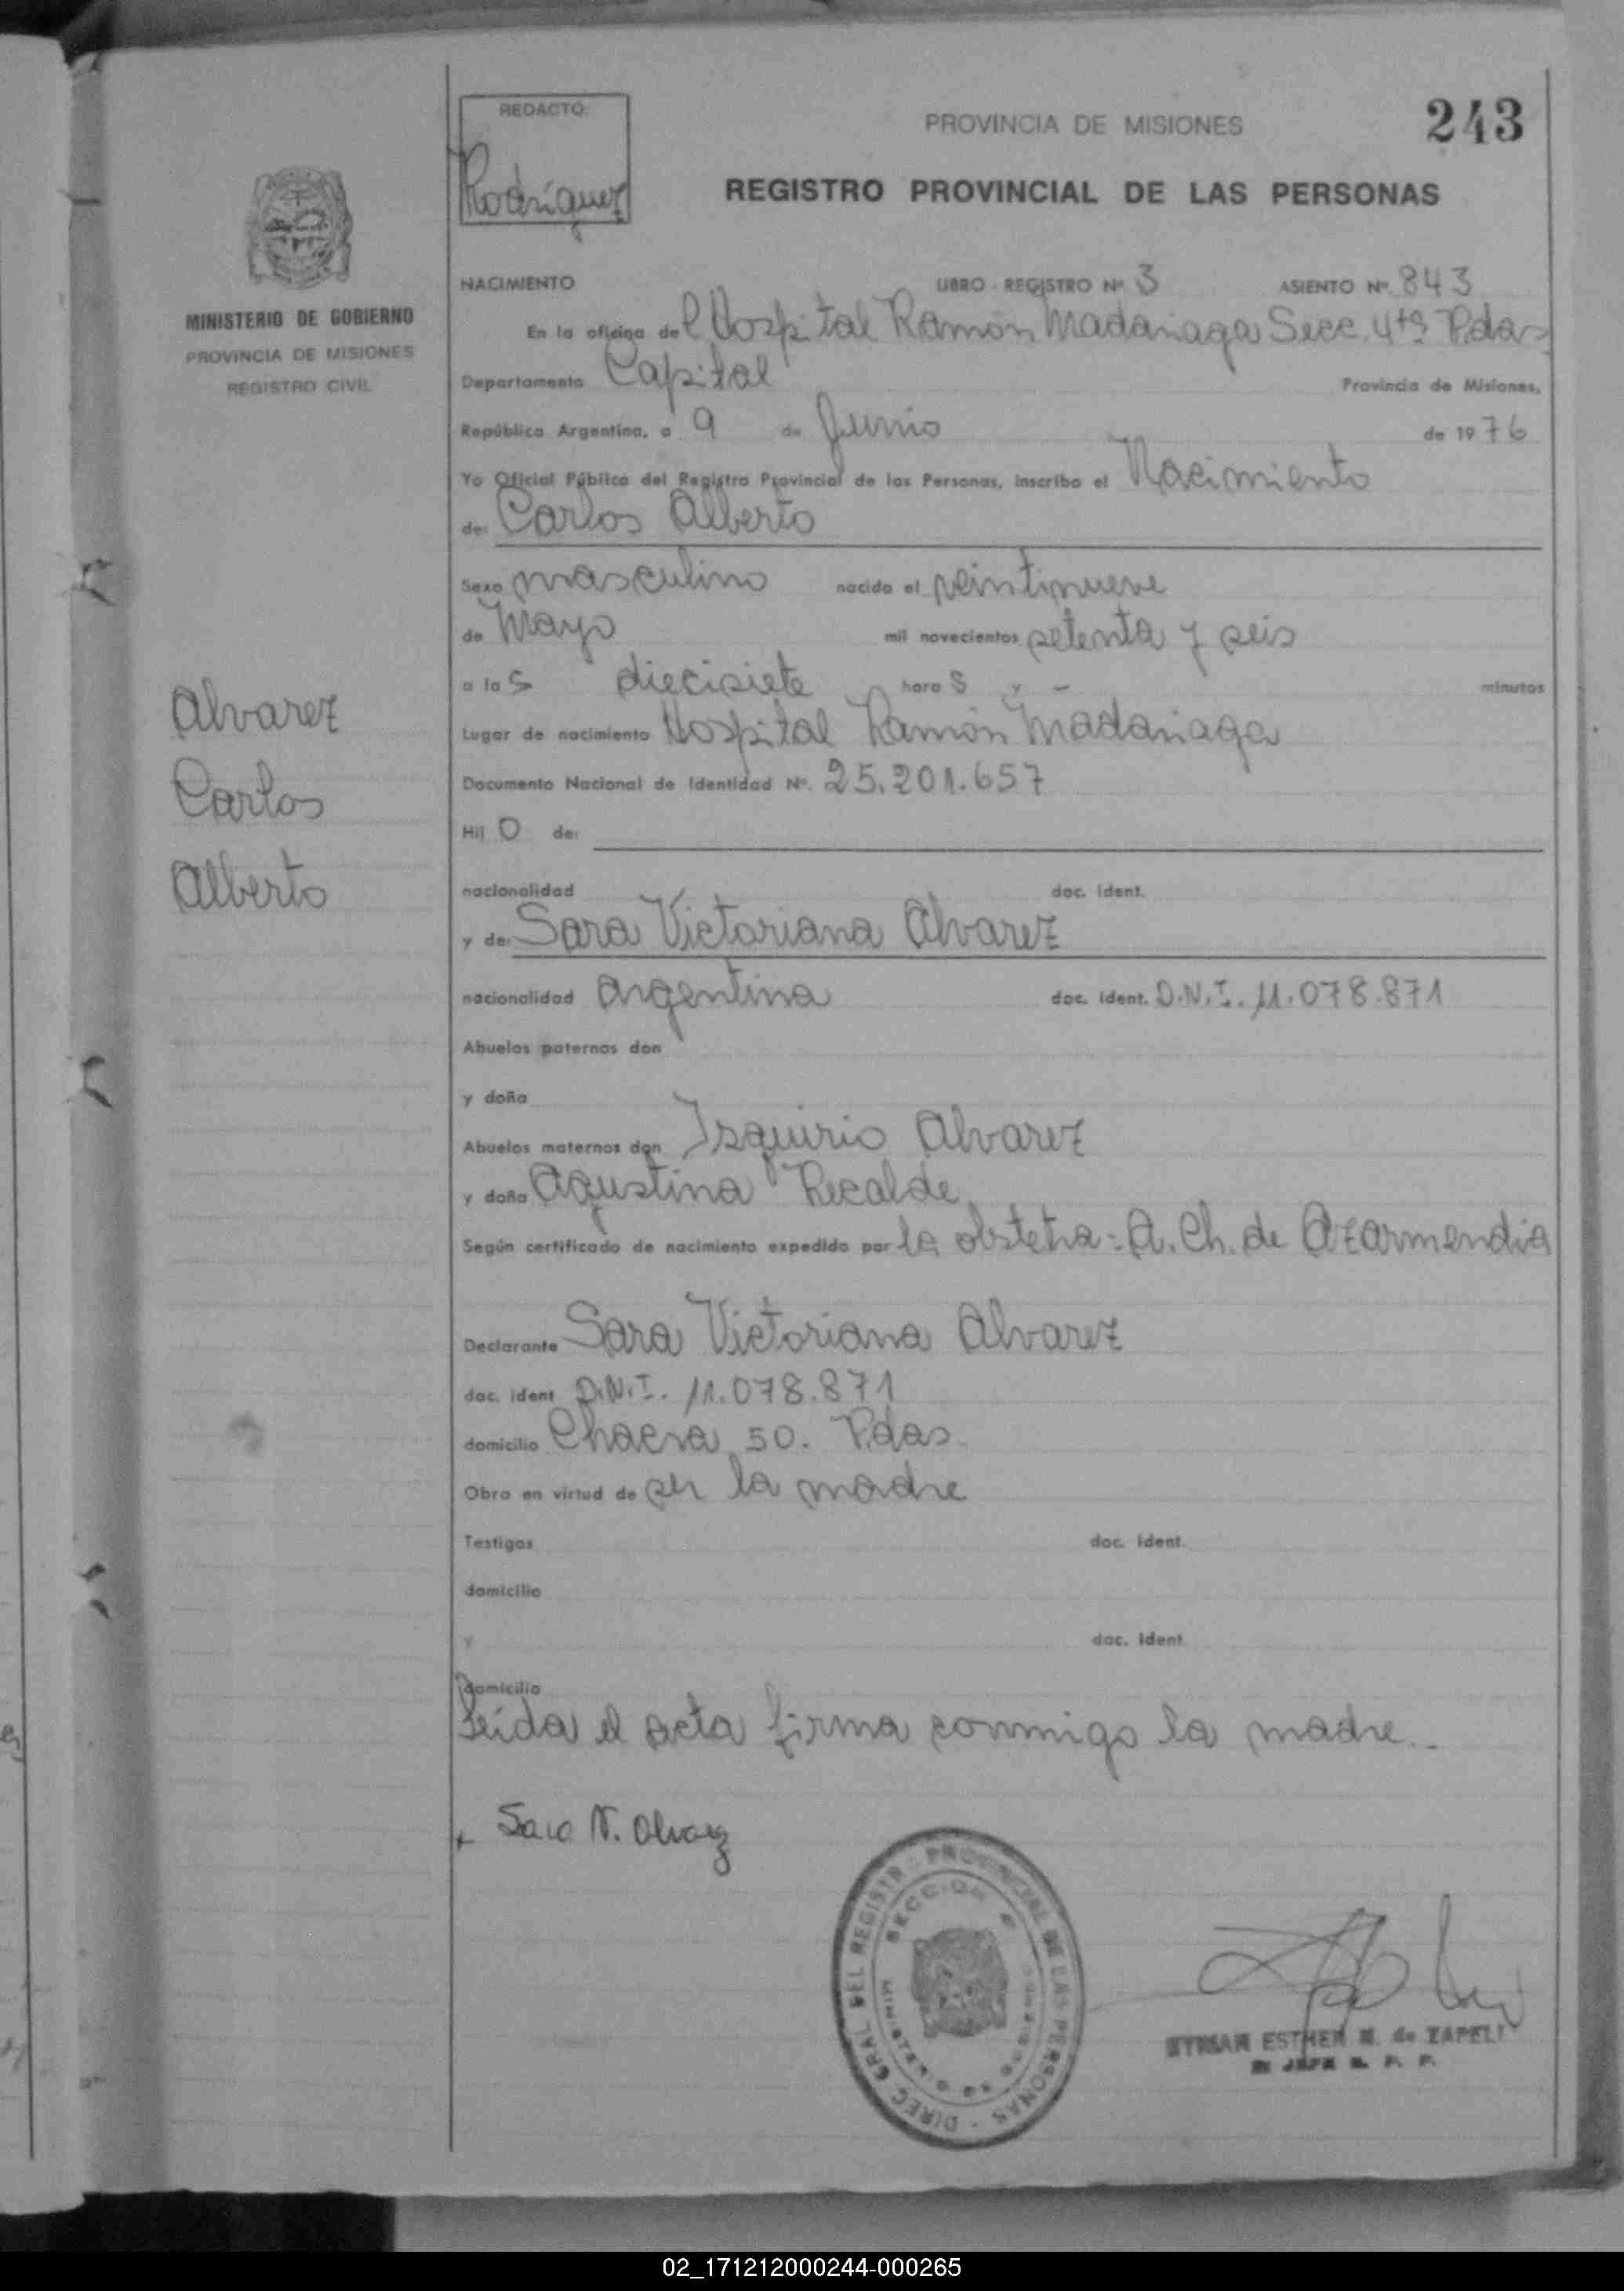 REDACTO:
Rodríguez
PROVINCIA DE MISIONES
243
REGISTRO PROVINCIAL DE LAS PERSONAS
MINISTERIO DE GOBIERNO
PROVINCIA DE MISIONES
REGISTRO CIVIL
NACIMIENTO LIBRO - REGISTRO Nº 3 ASIENTO Nº. 843
En la oficina del Hospital Ramón Madariaga Secc. 4ta Pdas
Departamento Capital Provincia de Misiones,
República Argentina, a 9 de Junio de 1976
Yo Oficial Público del Registro Provincial de las Personas, inscribo el Nacimiento
de: Carlos Alberto
Sexo masculino nacido el veintinueve
de Mayo mil novecientos setenta y seis
a las diecisiete horas y - minutos
Lugar de nacimiento Hospital Ramón Madariaga
Documento Nacional de Identidad Nº. 25.201.657
Hijo de:
nacionalidad doc. ident.
y de: Sara Victoriana Alvarez
nacionalidad argentina doc. ident. D.N.I. 11.078.871
Abuelos paternos don
y doña
Abuelos maternos don Isquirio Alvarez
y doña Agustina Recalde
Según certificado de nacimiento expedido por la obstetra: A. Ch. de Azarmendia
Declarante Sara Victoriana Alvarez
doc. ident D.N.I. 11.078.871
domicilio Chacra 50. Pdas
Obra en virtud de ser la madre
Testigos doc. ident.
domicilio
y doc. ident
domicilio
Leída el acta firma conmigo la madre.-
Sara V. Alvarez
Alvarez
Carlos
Alberto
DIREC. GRAL DEL REGISTRO PROVINCIAL DE LAS PERSONAS
SECCION
ESTHER M. de ZAPELI
JEFE
02_171212000244-000265